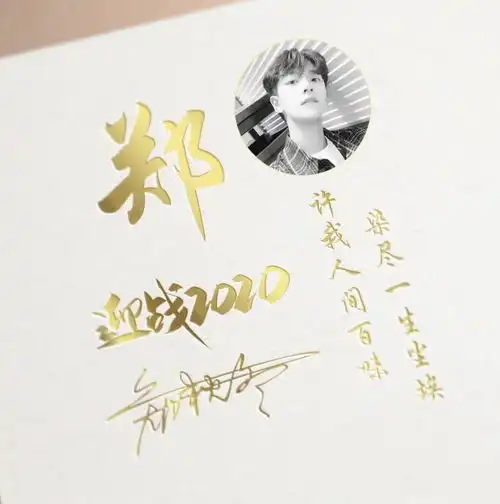 郑
迎战2020
染尽一生尘埃
许我人间百味